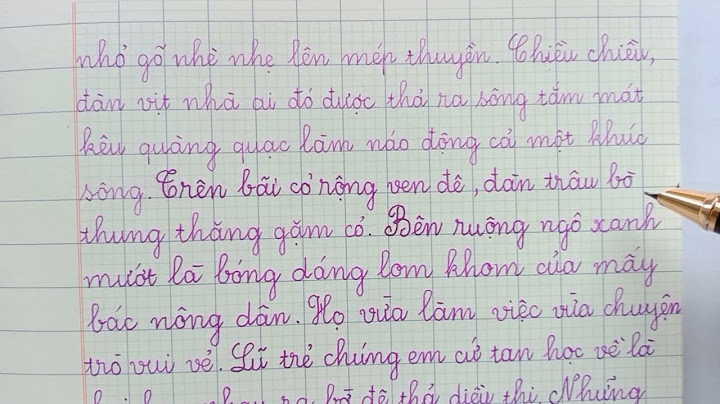 nhỏ gõ nhè nhẹ lên mép thuyền. Chiều chiều,
đàn vịt nhà ai đó được thả ra sông tắm mát
kêu quàng quạc làm náo động cả một khúc
sông. Trên bãi cỏ rộng ven đê, đàn trâu bò
thung thăng gặm cỏ. Bên ruộng ngô xanh
mướt là bóng dáng lom khom của mấy
bác nông dân. Họ vừa làm việc vừa chuyện
trò vui vẻ. Lũ trẻ chúng em cứ tan học về là
nhau ra bờ đê thả diều thi. Những